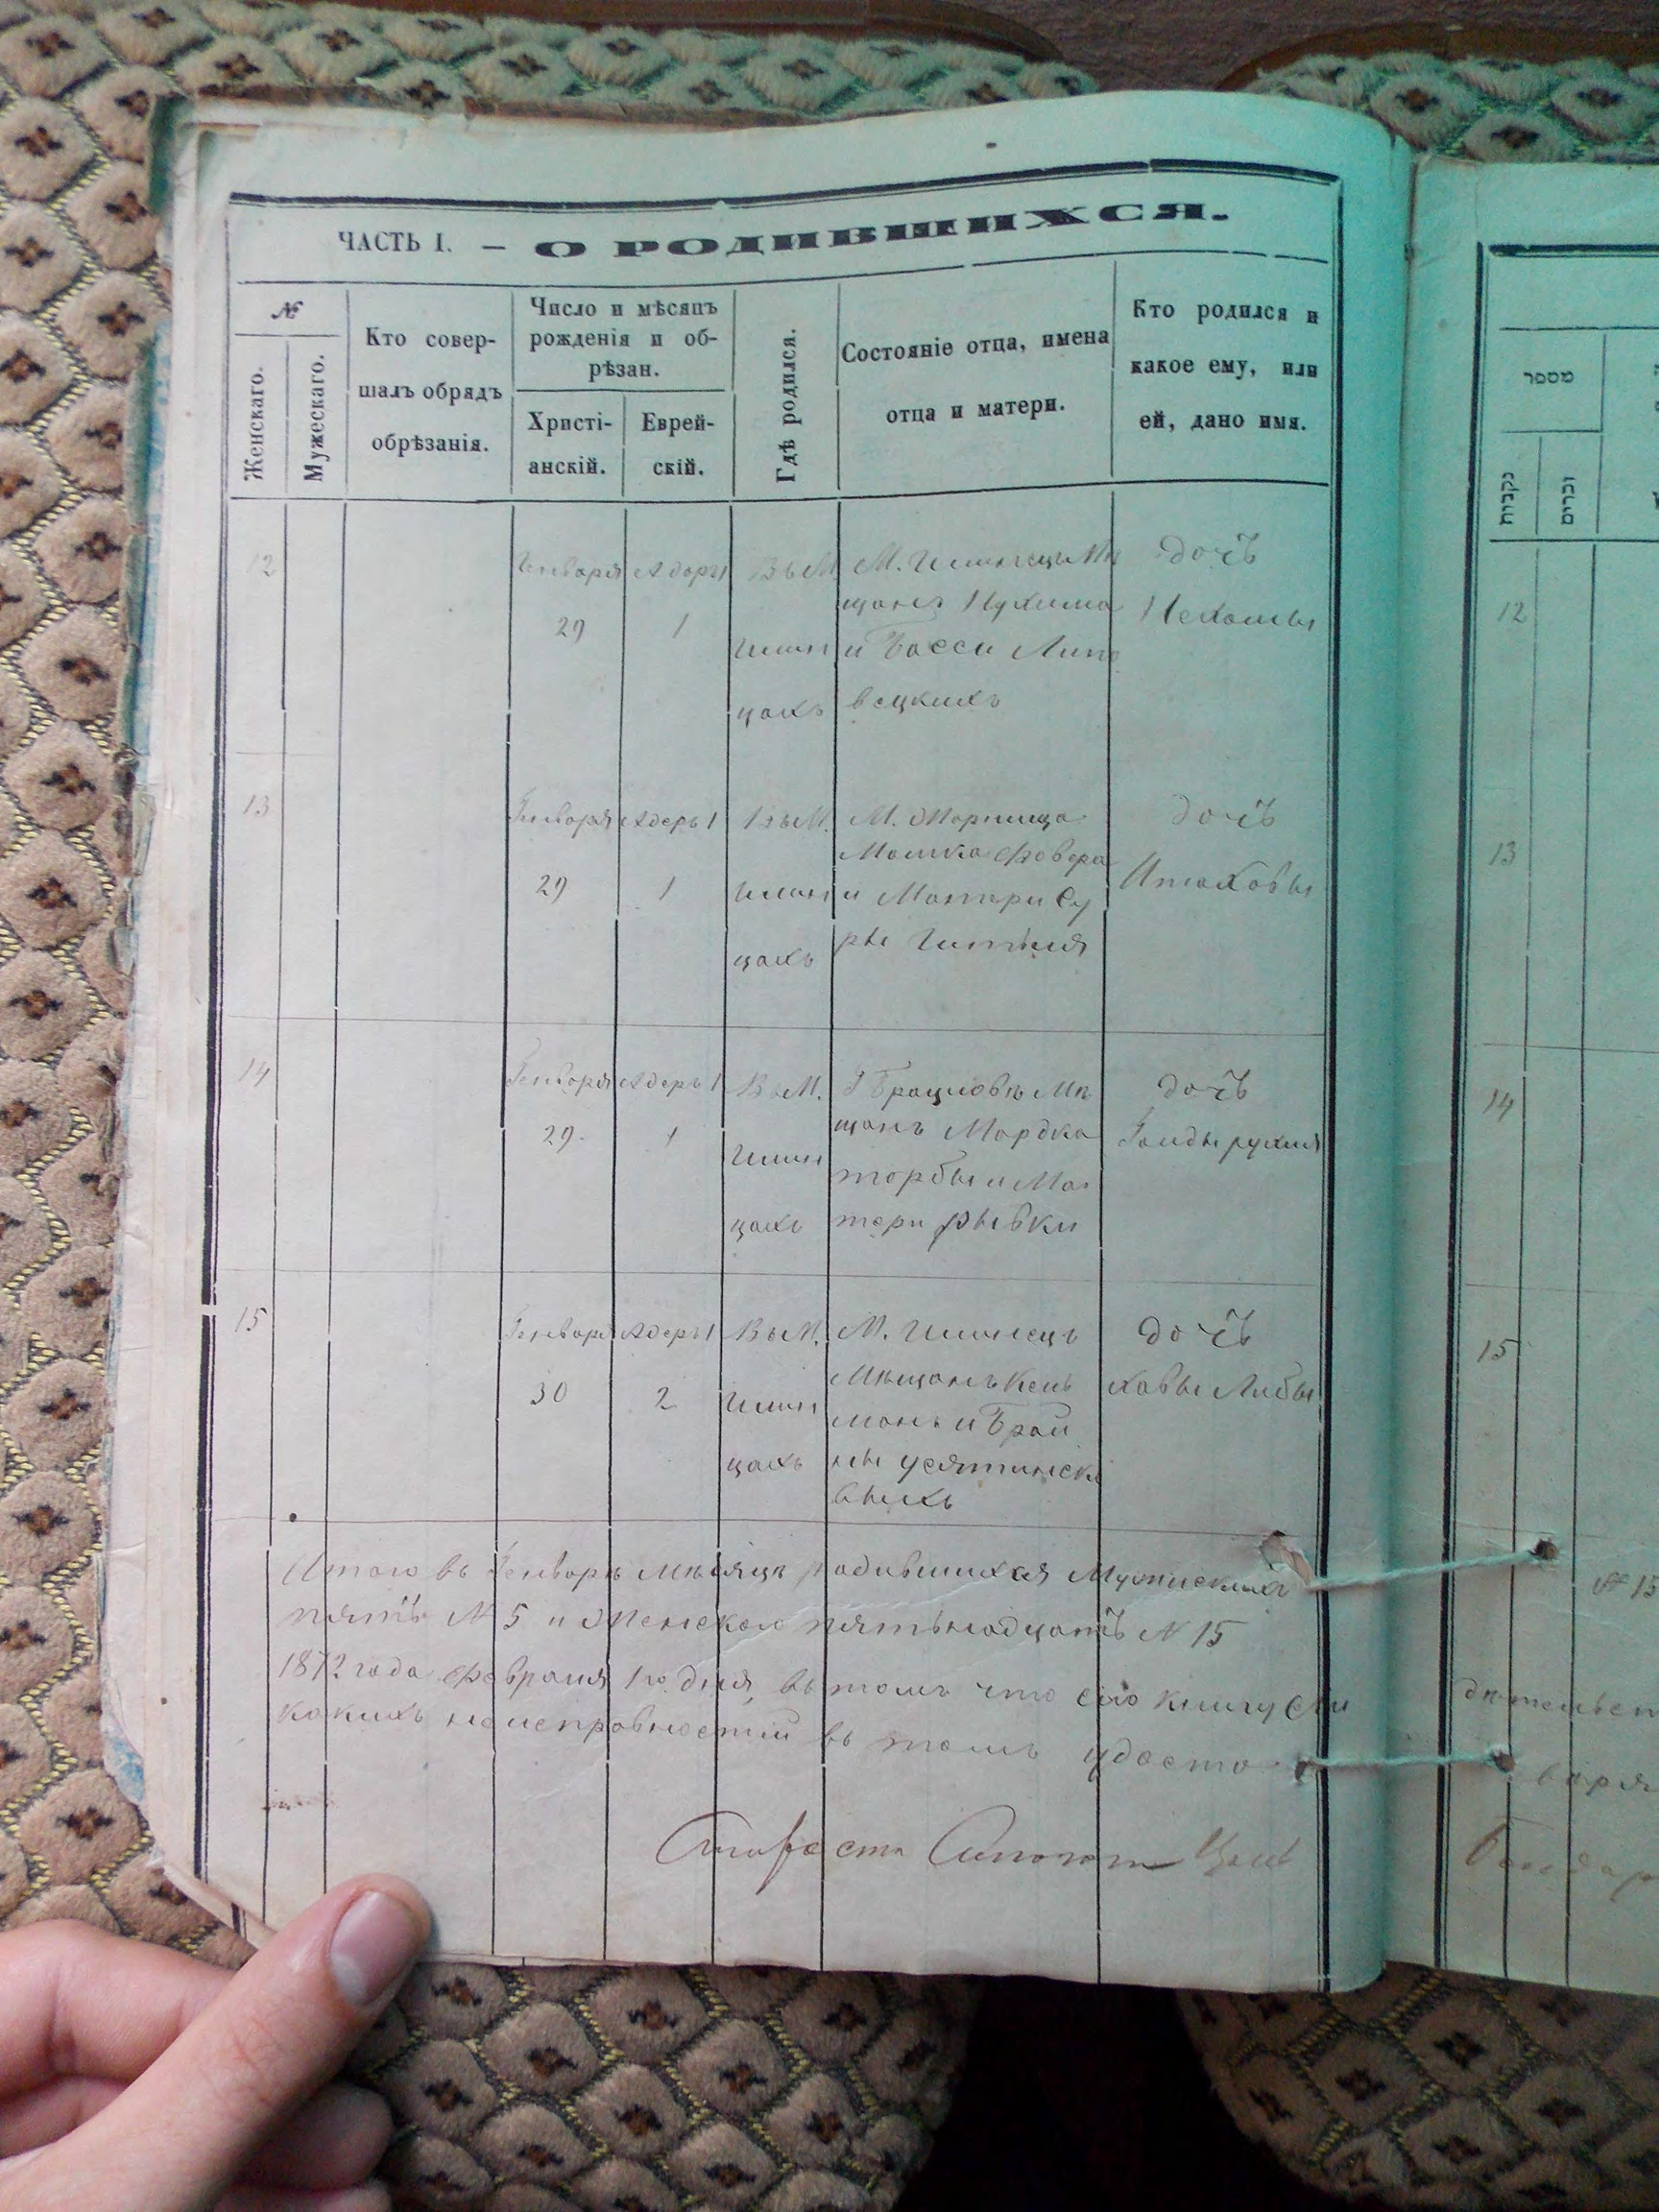 ЧАСТЬ I. — О РОДИВШИХСЯ.
№
Женскаго.
Мужескаго.
Кто совер-
шалъ обрядъ
обрѣзанія.
Число и мѣсяцъ
рожденія и об-
рѣзан.
Христі-
анскій.
Еврей-
скій.
Гдѣ родился.
Состояніе отца, имена
отца и матери.
Кто родился и
какое ему, или
ей, дано имя.
12
Генваря
29
Адеръ 1
1
Въ М.
Илин
цахъ
М. Илинецъ Мѣ
щанъ Нухима
и Басси Липо
вецкихъ
дочь
Нехамы
13
Генваря
29
Адеръ 1
1
Въ М.
Илин
цахъ
М. Жорнища
Мошка Фавера
и Матери Су
ры Гитля
дочь
Итахавы
14
Генваря
29
Адеръ 1
1
Въ М.
Илин
цахъ
Г Брацлавъ Мѣ
щанъ Мордка
торбы и Ма
тери рывки
дочь
Голды рухля
15
Генваря
30
Адеръ 1
2
Въ М.
Илин
цахъ
М. Илинецъ
Мѣщанъ
манъ и Брай
ны
выхъ
дочь
Хавы Либы
Итого въ Генварѣ мѣсяцѣ родившихся Мужескихъ
пять № 5 и Женскаго пятьнадцать № 15
1872 года февраля 1го дня, въ томъ что сію книгу
какихъ неисправностій въ томъ удосто
Староста
מספר
נקבות
זכרים
12
13
14
15
№ 15
варя